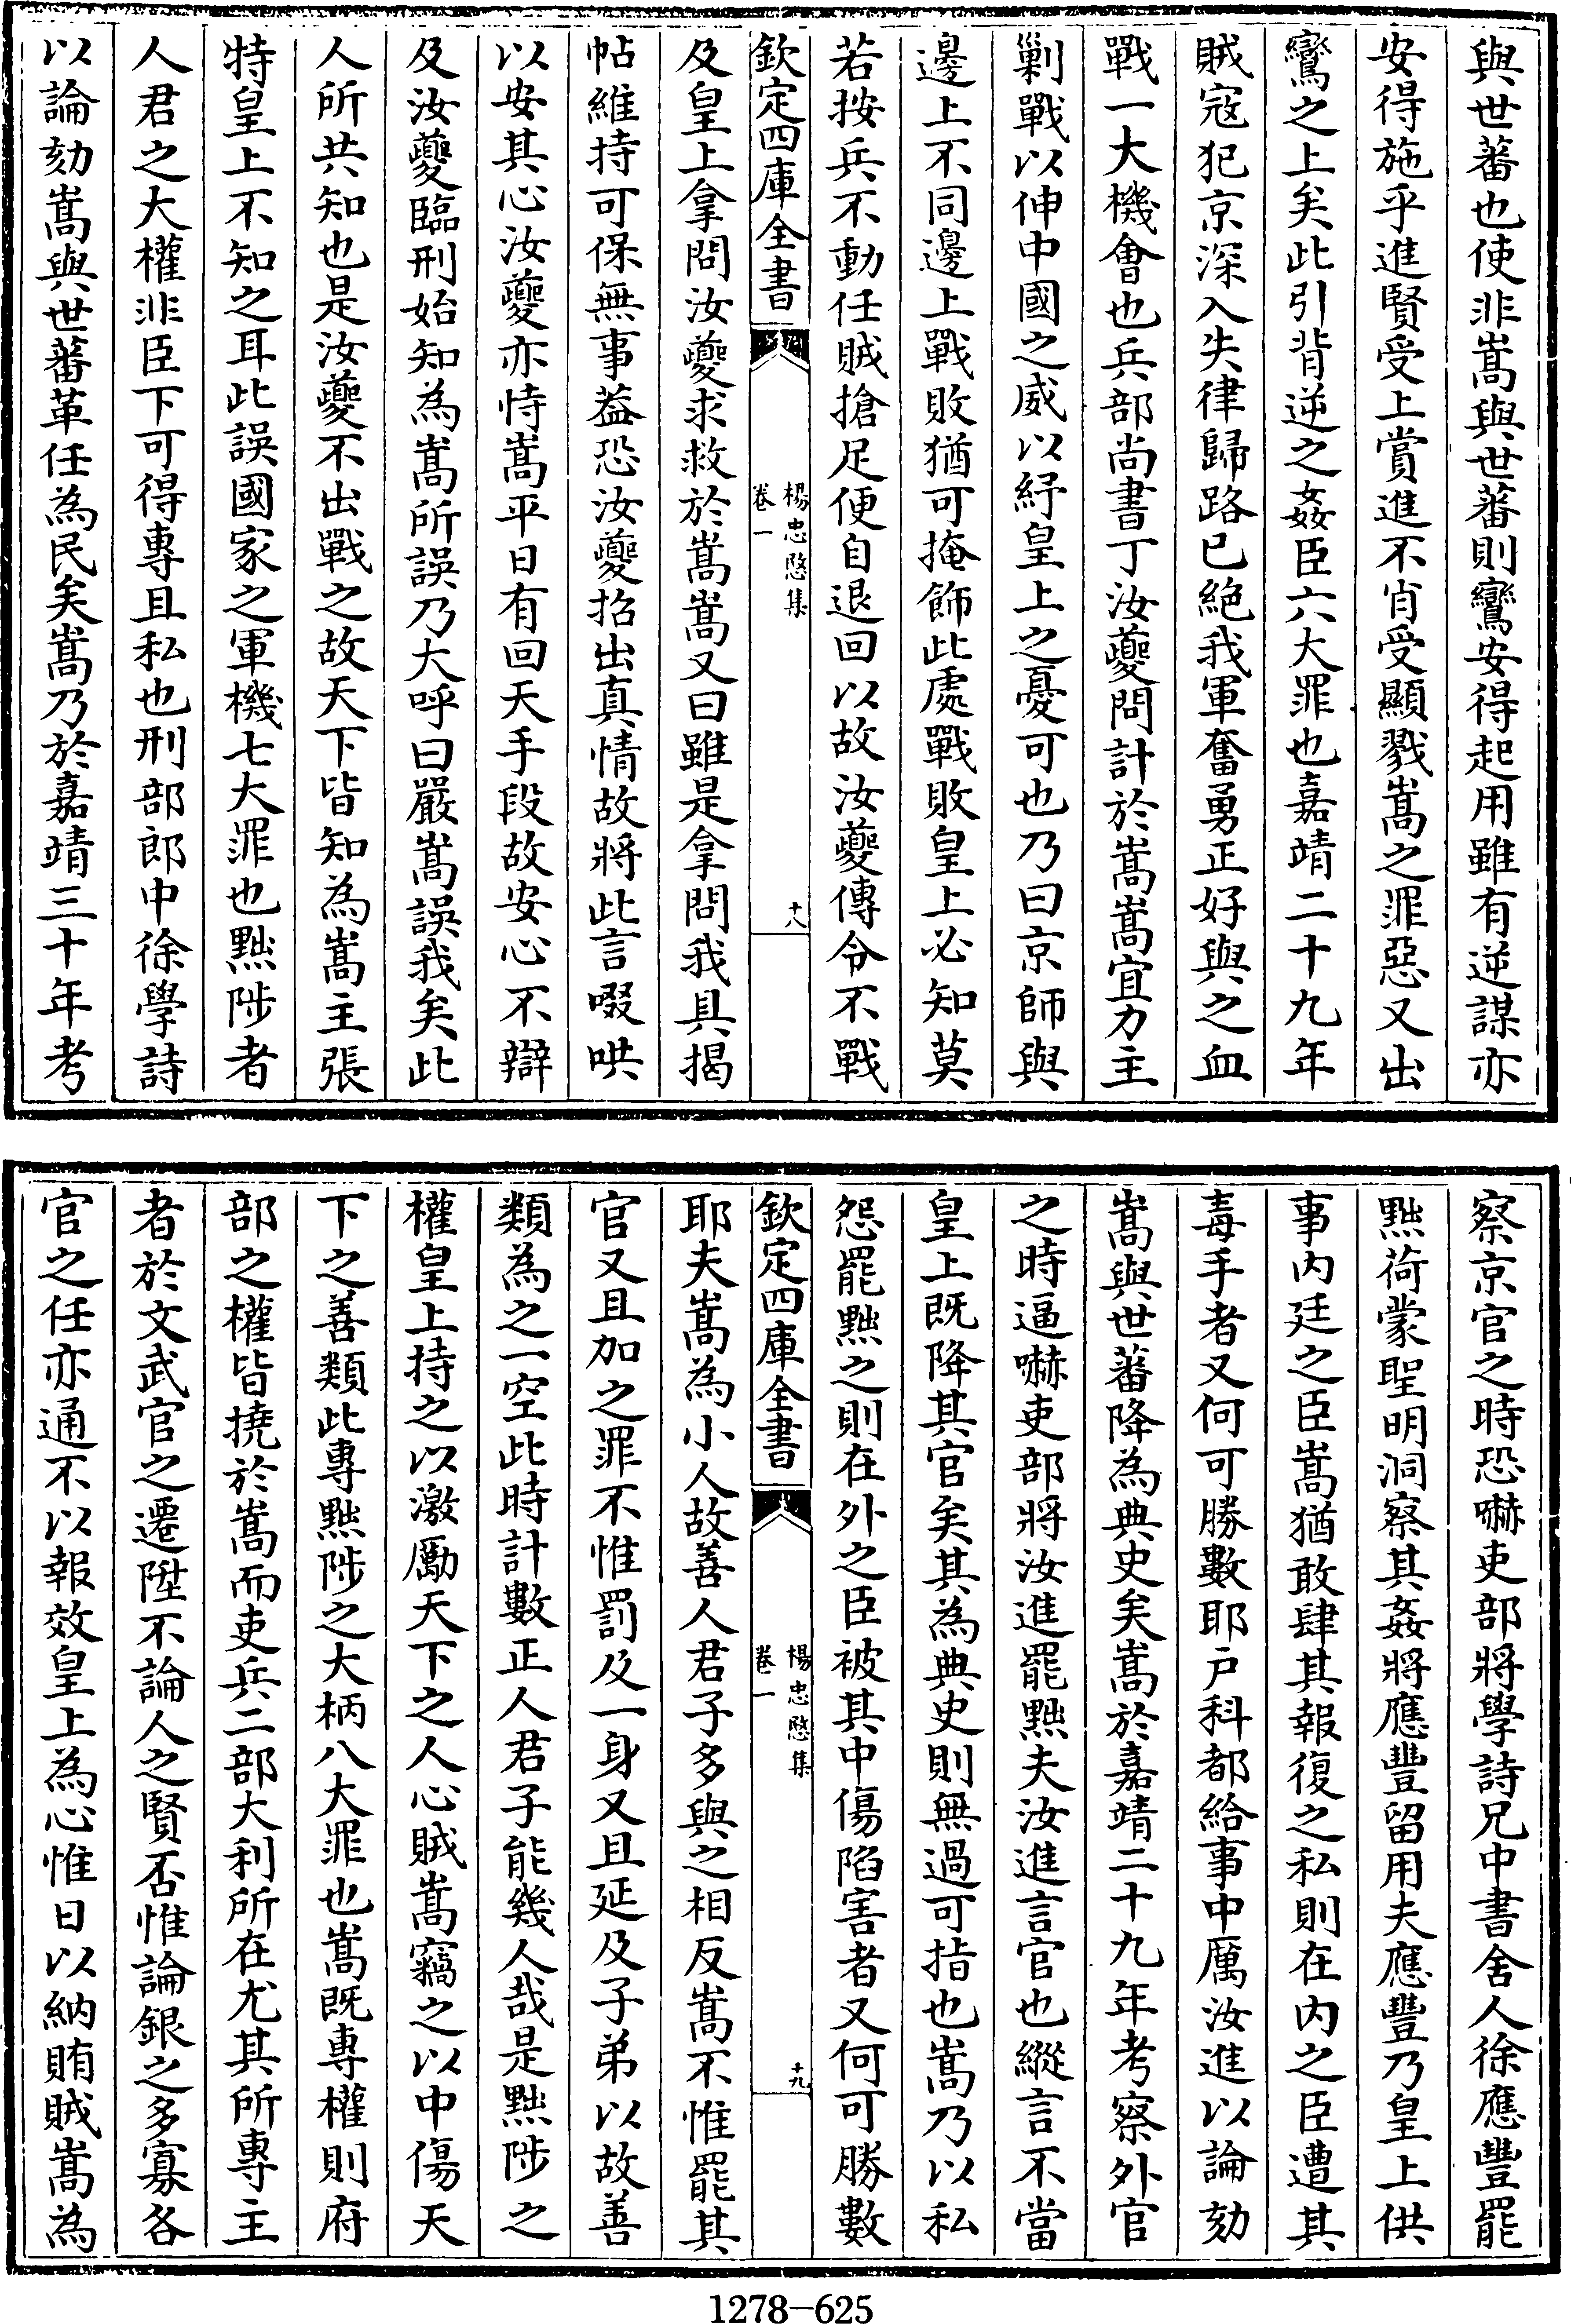 與世蕃也使非嵩與世蕃則鸞安得起用雖有逆謀亦
安得施乎進賢受上賞進不肖受顯戮嵩之罪惡又出
鸞之上矣此引背逆之姦臣六大罪也嘉靖二十九年
賊寇犯京深入失律歸路已絕我軍奮勇正好與之血
戰一大機會也兵部尚書丁汝夔問計於嵩嵩宜力主
剿戰以伸中國之威以紓皇上之憂可也乃曰京師與
邊上不同邊上戰敗猶可掩飾此處戰敗皇上必知莫
若按兵不動任賊搶足便自退回以故汝夔傳令不戰
欽定四庫全書
楊忠愍集
卷一
十八
及皇上拿問汝夔求救於嵩嵩又曰雖是拿問我具揭
帖維持可保無事葢恐汝夔招出真情故將此言啜哄
以安其心汝夔亦恃嵩平日有回天手段故安心不辯
及汝夔臨刑始知為嵩所誤乃大呼曰嚴嵩誤我矣此
人所共知也是汝夔不出戰之故天下皆知為嵩主張
特皇上不知之耳此誤國家之軍機七大罪也黜陟者
人君之大權非臣下可得專且私也刑部郎中徐學詩
以論劾嵩與世蕃革任為民矣嵩乃於嘉靖三十年考
察京官之時恐嚇吏部將學詩兄中書舍人徐應豐罷
黜荷蒙聖明洞察其姦將應豐留用夫應豐乃皇上供
事內廷之臣嵩猶敢肆其報復之私則在內之臣遭其
毒手者又何可勝數耶戶科都給事中厲汝進以論劾
嵩與世蕃降為典史矣嵩於嘉靖二十九年考察外官
之時逼嚇吏部將汝進罷黜夫汝進言官也縱言不當
皇上既降其官矣其為典史則無過可指也嵩乃以私
怨罷黜之則在外之臣被其中傷陷害者又何可勝數
欽定四庫全書
楊忠愍集
卷一
十九
耶夫嵩為小人故善人君子多與之相反嵩不惟罷其
官又且加之罪不惟罰及一身又且延及子弟以故善
類為之一空此時計數正人君子能幾人哉是黜陟之
權皇上持之以激勵天下之人心賊嵩竊之以中傷天
下之善類此專黜陟之大柄八大罪也嵩既專權則府
部之權皆撓於嵩而吏兵二部大利所在尤其所專主
者於文武官之遷陞不論人之賢否惟論銀之多寡各
官之任亦通不以報效皇上為心惟日以納賄賊嵩為
1278—625